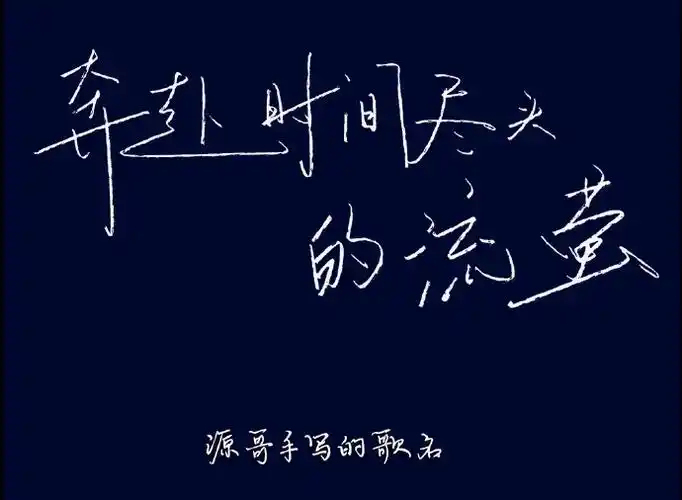 奔赴时间尽头
的流萤
源哥手写的歌名